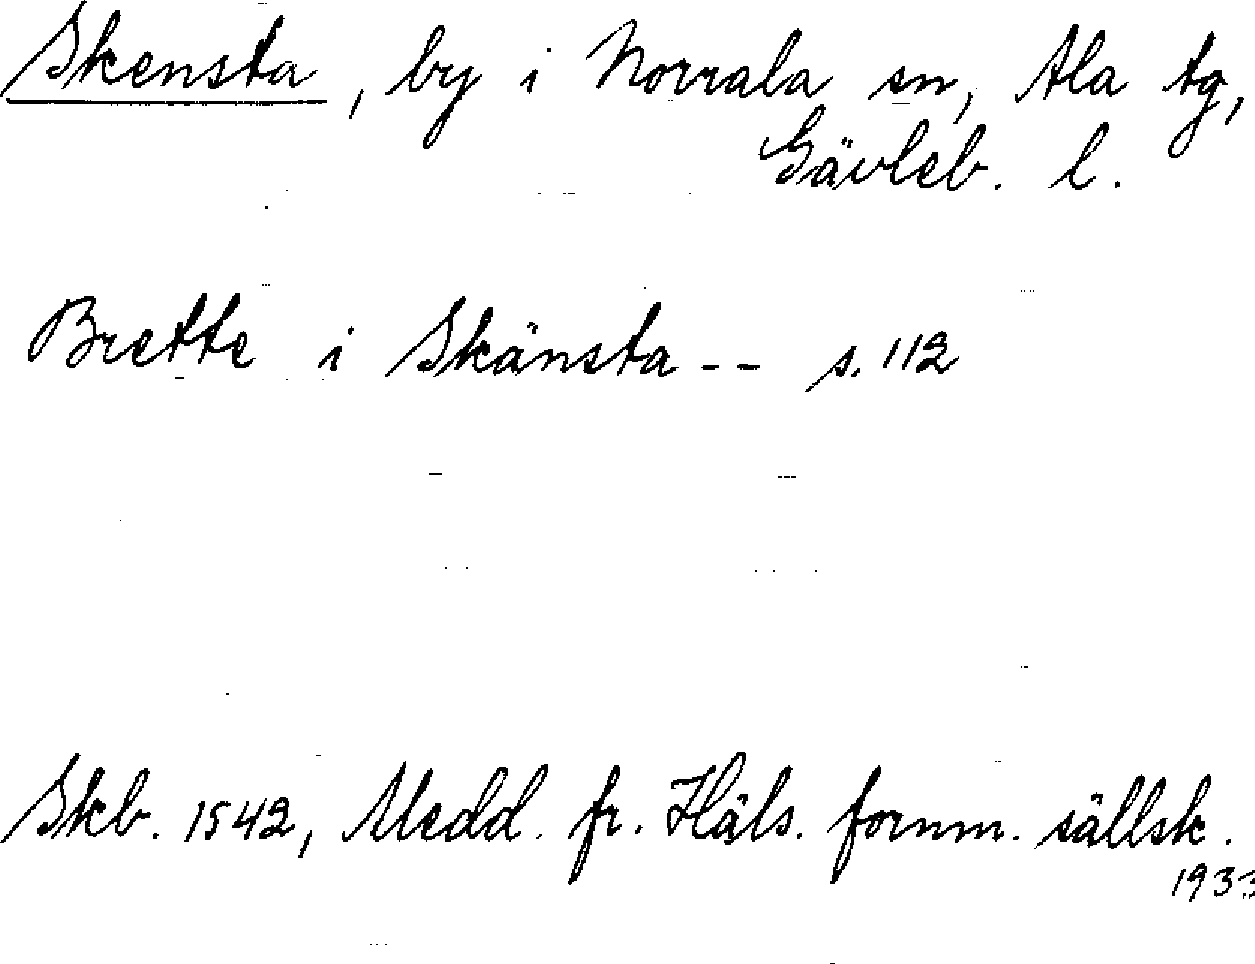 Skensta, by i Norrala sn, Ala tg,
Gävleb. l.
Brette i Skänsta -- s. 112
Skb. 1542, Medd. fr. Häls. fornm. sällsk.
1933